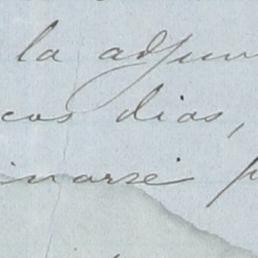 la adjun
cos dias,
inarse p